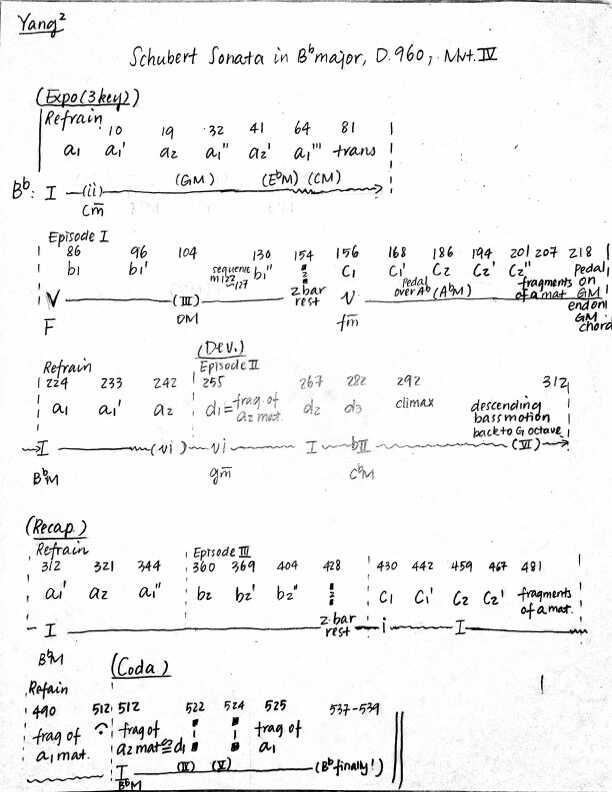 Yang²
Schubert Sonata in B♭ major, D.960, Mvt. IV
(Expo (3 key))
Refrain
10 19 32 41 64 81
a1 a1' a2 a1" a2' a1"' trans
B♭: I (ii) (GM) (E♭M) (CM)
Cm̄
Episode I
86 96 104 130 154 156 168 186 194 201 207 218
b1 b1' sequence m122-127 b1" 2 C1 C1' C2 C2' C2" fragments of a mat Pedal on GM end on GM chord
V (III) 2 bar rest v pedal over A♭ (A♭M)
F DM fm̄
(Dev.)
Refrain Episode II
224 233 242 255 267 282 292 312
a1 a1' a2 d1 = frag. of a2 mat. d2 d3 climax descending bass motion back to G octave
I (vi) vi I bII (VI)
B♭M gm̄ C♭M
(Recap)
Refrain Episode III
312 321 344 360 369 404 428 430 442 459 467 481
a1' a2 a1" b2 b2' b2" 2 C1 C1' C2 C2' fragments of a mat.
I 2-bar rest i I
B♭M
(Coda)
Refain
490 512 512 522 524 525 537-539
frag of a1 mat. frag of a2 mat ≅ d1 frag of a1
I (V) (B♭ finally!)
B♭M